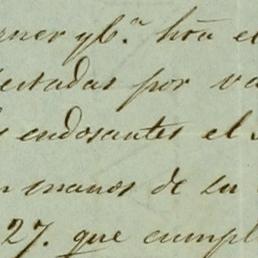 rner y C.ª hta el
ectadas por va
s endosantes el
n manos de su
27. que cumpl